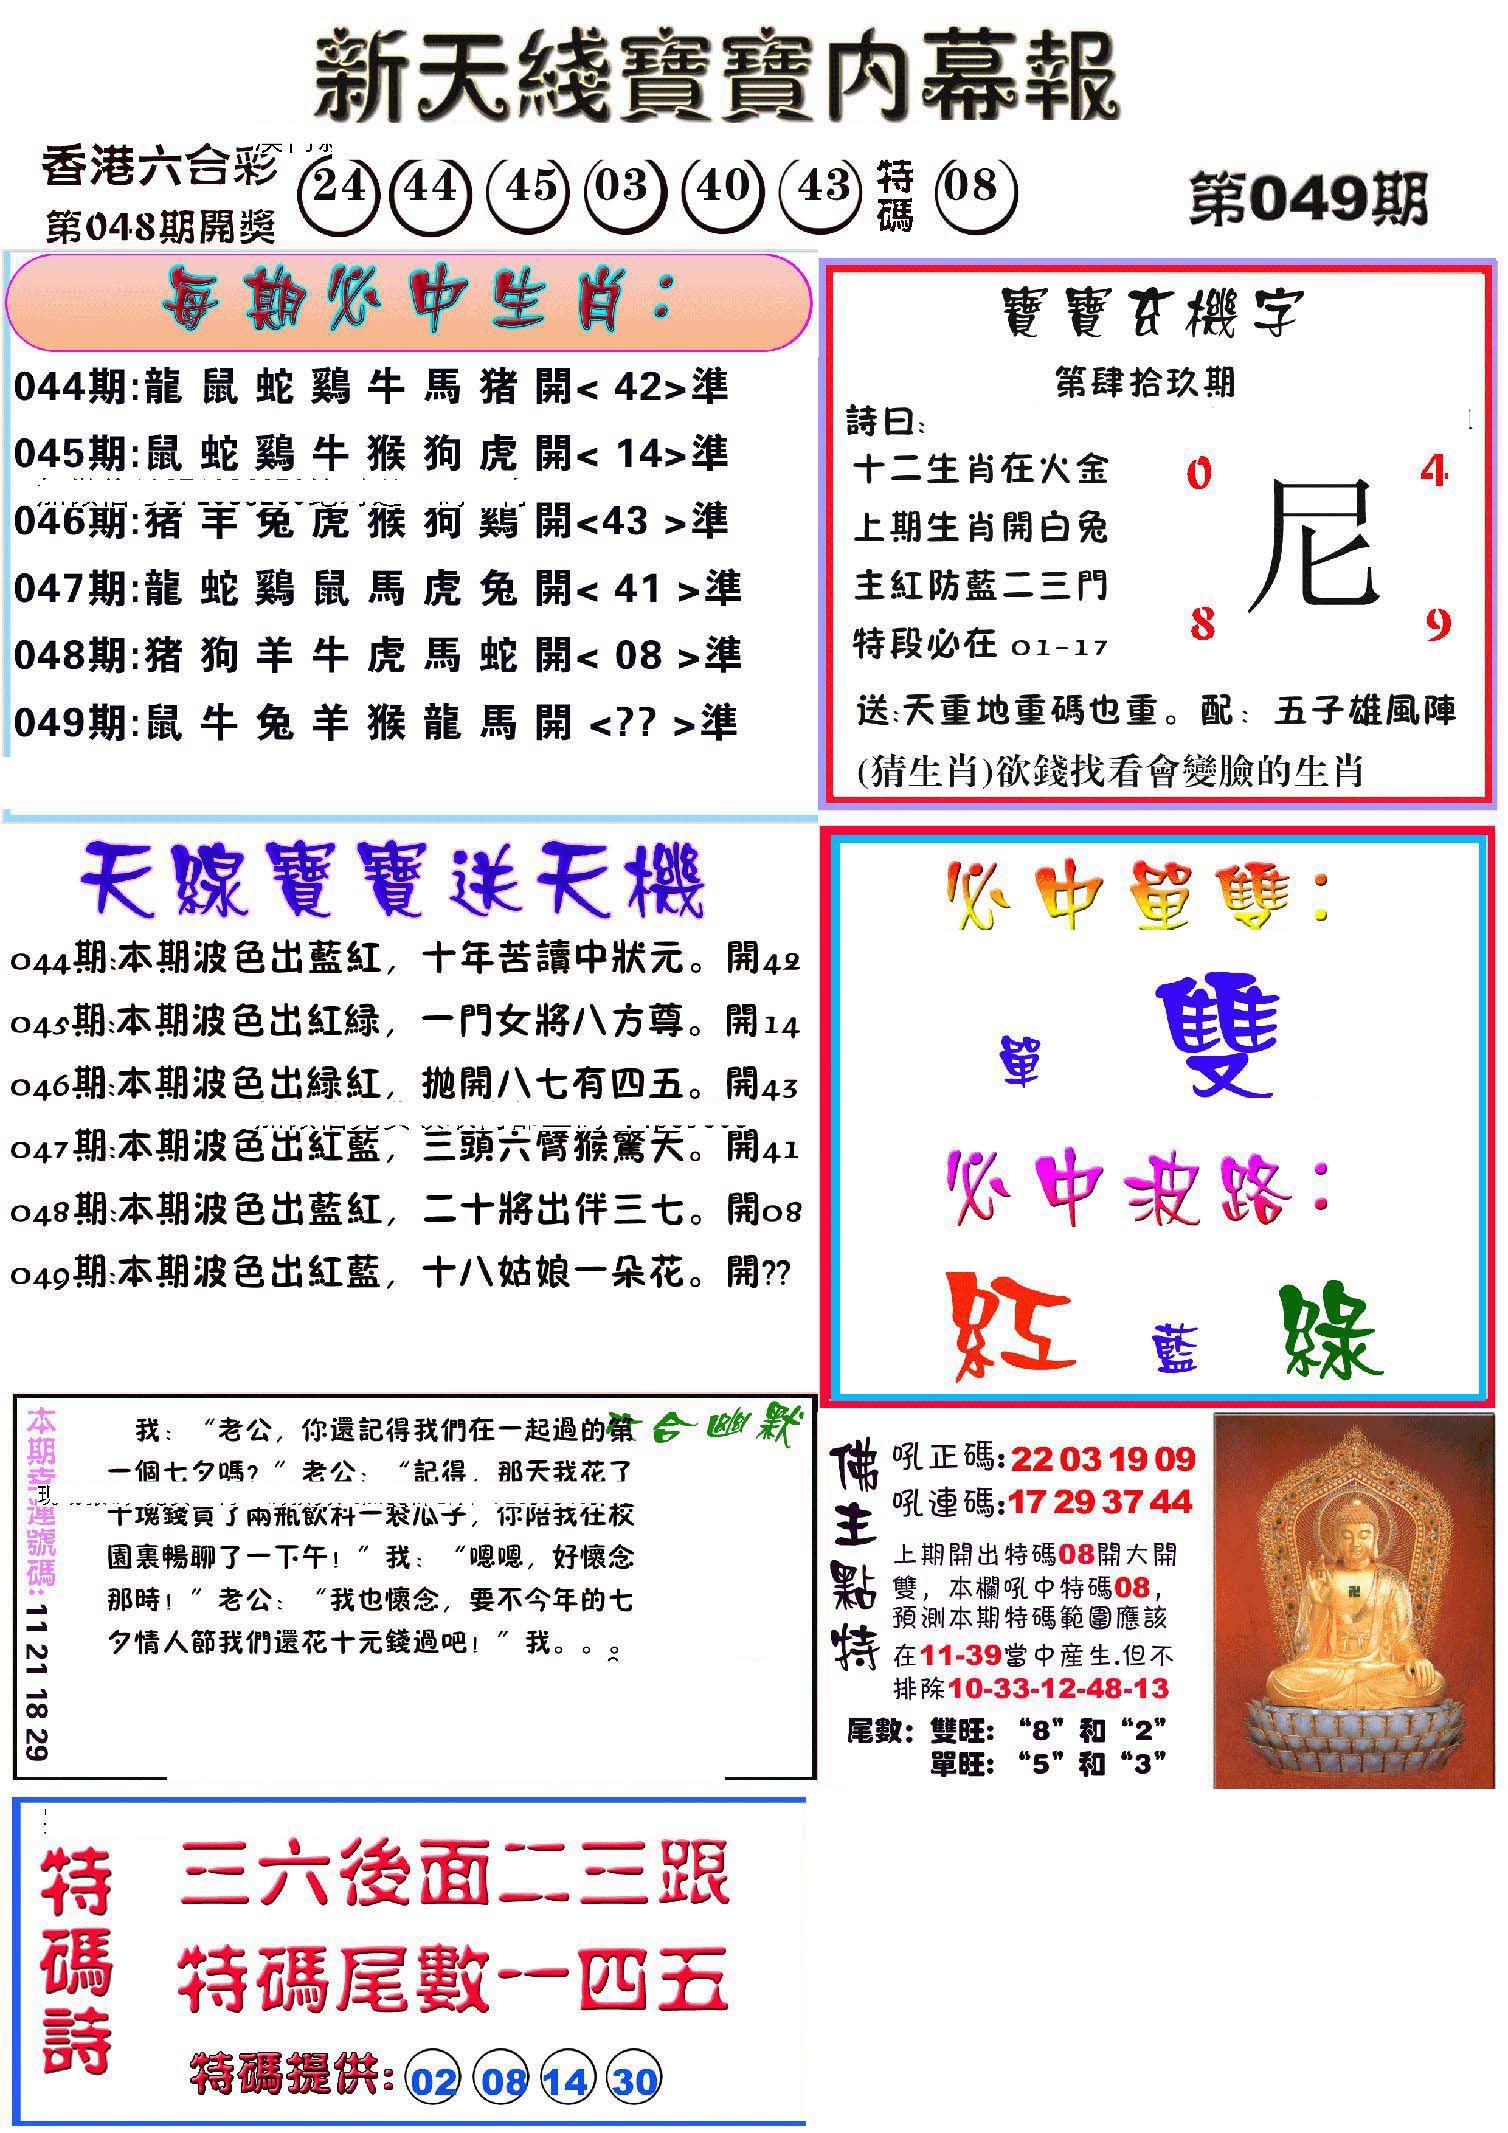 新天綫寶寶内幕報
香港六合彩
第048期開獎
24 44 45 03 40 43 特碼 08
第049期
每期必中生肖：
044期:龍 鼠 蛇 鷄 牛 馬 猪 開< 42>準
045期:鼠 蛇 鷄 牛 猴 狗 虎 開< 14>準
046期:猪 羊 兔 虎 猴 狗 鷄 開<43 >準
047期:龍 蛇 鷄 鼠 馬 虎 兔 開< 41 >準
048期:猪 狗 羊 牛 虎 馬 蛇 開< 08 >準
049期:鼠 牛 兔 羊 猴 龍 馬 開 <?? >準
寶寶玄機字
第肆拾玖期
詩曰:
十二生肖在火金
上期生肖開白兔
主紅防藍二三門
特段必在 01-17
0 4
尼
8 9
送:天重地重碼也重。配：五子雄風陣
(猜生肖)欲錢找看會變臉的生肖
天線寶寶送天機
044期:本期波色出藍紅，十年苦讀中狀元。開42
045期:本期波色出紅緑，一門女將八方尊。開14
046期:本期波色出緑紅，抛開八七有四五。開43
047期:本期波色出紅藍，三頭六臂猴驚天。開41
048期:本期波色出藍紅，二十將出伴三七。開08
049期:本期波色出紅藍，十八姑娘一朵花。開??
必中單雙：
單 雙
必中波路：
紅 藍 緑
合幽默
本期幸運號碼:11 21 18 29
我：“老公，你還記得我們在一起過的第
一個七夕嗎？”老公：“記得，那天我花了
十塊錢買了兩瓶飲料一袋瓜子，你陪我在校
園裏暢聊了一下午！”我：“嗯嗯，好懷念
那時！”老公：“我也懷念，要不今年的七
夕情人節我們還花十元錢過吧！”我。。。
佛主點特
吼正碼:22 03 19 09
吼連碼:17 29 37 44
上期開出特碼08開大開
雙，本欄吼中特碼08，
預測本期特碼範圍應該
在11-39當中産生.但不
排除10-33-12-48-13
尾數：雙旺：“8”和“2”
單旺：“5”和“3”
特碼詩
三六後面二三跟
特碼尾數一四五
特碼提供: 02 08 14 30